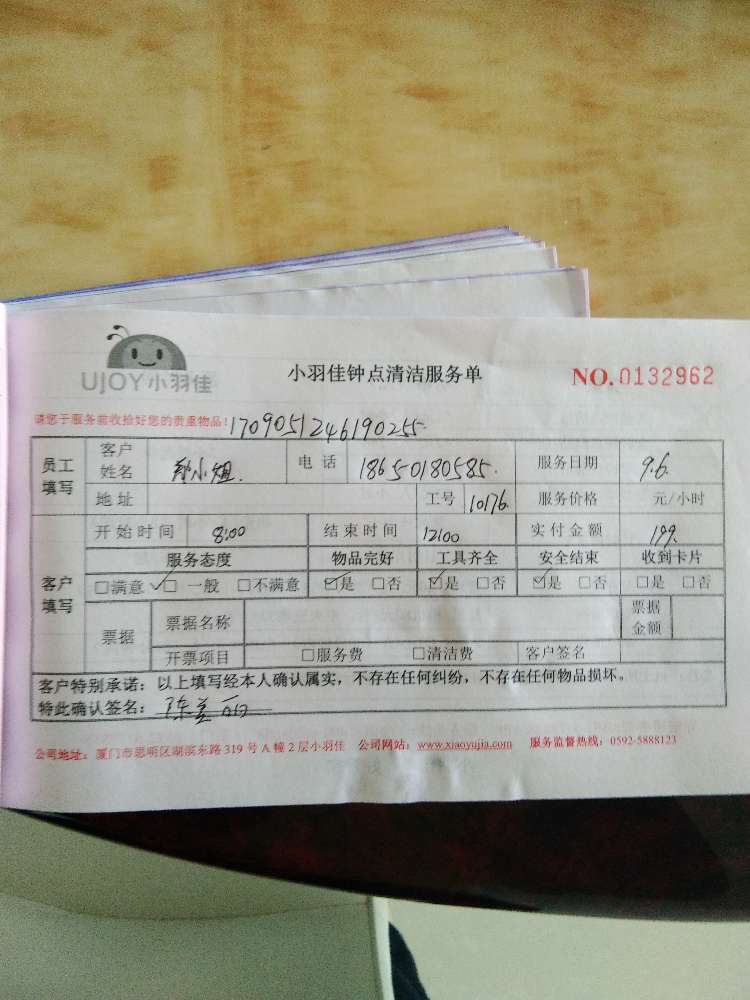 UJOY小羽佳
小羽佳钟点清洁服务单
NO.0132962
请您于服务前收拾好您的贵重物品!
1709051246190255
员工填写 客户姓名 小姐. 电话 18650180585. 服务日期 9.6.
地址 工号 10176 服务价格 元/小时
客户填写 开始时间 8:00 结束时间 12:00 实付金额 199.
服务态度 物品完好 工具齐全 安全结束 收到卡片
□满意 ✓□一般 □不满意 ☑是 □否 ☑是 □否 ☑是 □否 □是 □否
票据 票据名称 票据金额
开票项目 □服务费 □清洁费 客户签名
客户特别承诺：以上填写经本人确认属实，不存在任何纠纷，不存在任何物品损坏。
特此确认签名：陈兰丽
公司地址：厦门市思明区湖滨东路 319 号 A 幢 2 层小羽佳 公司网站：www.xiaoyujia.com 服务监督热线：0592-5888123